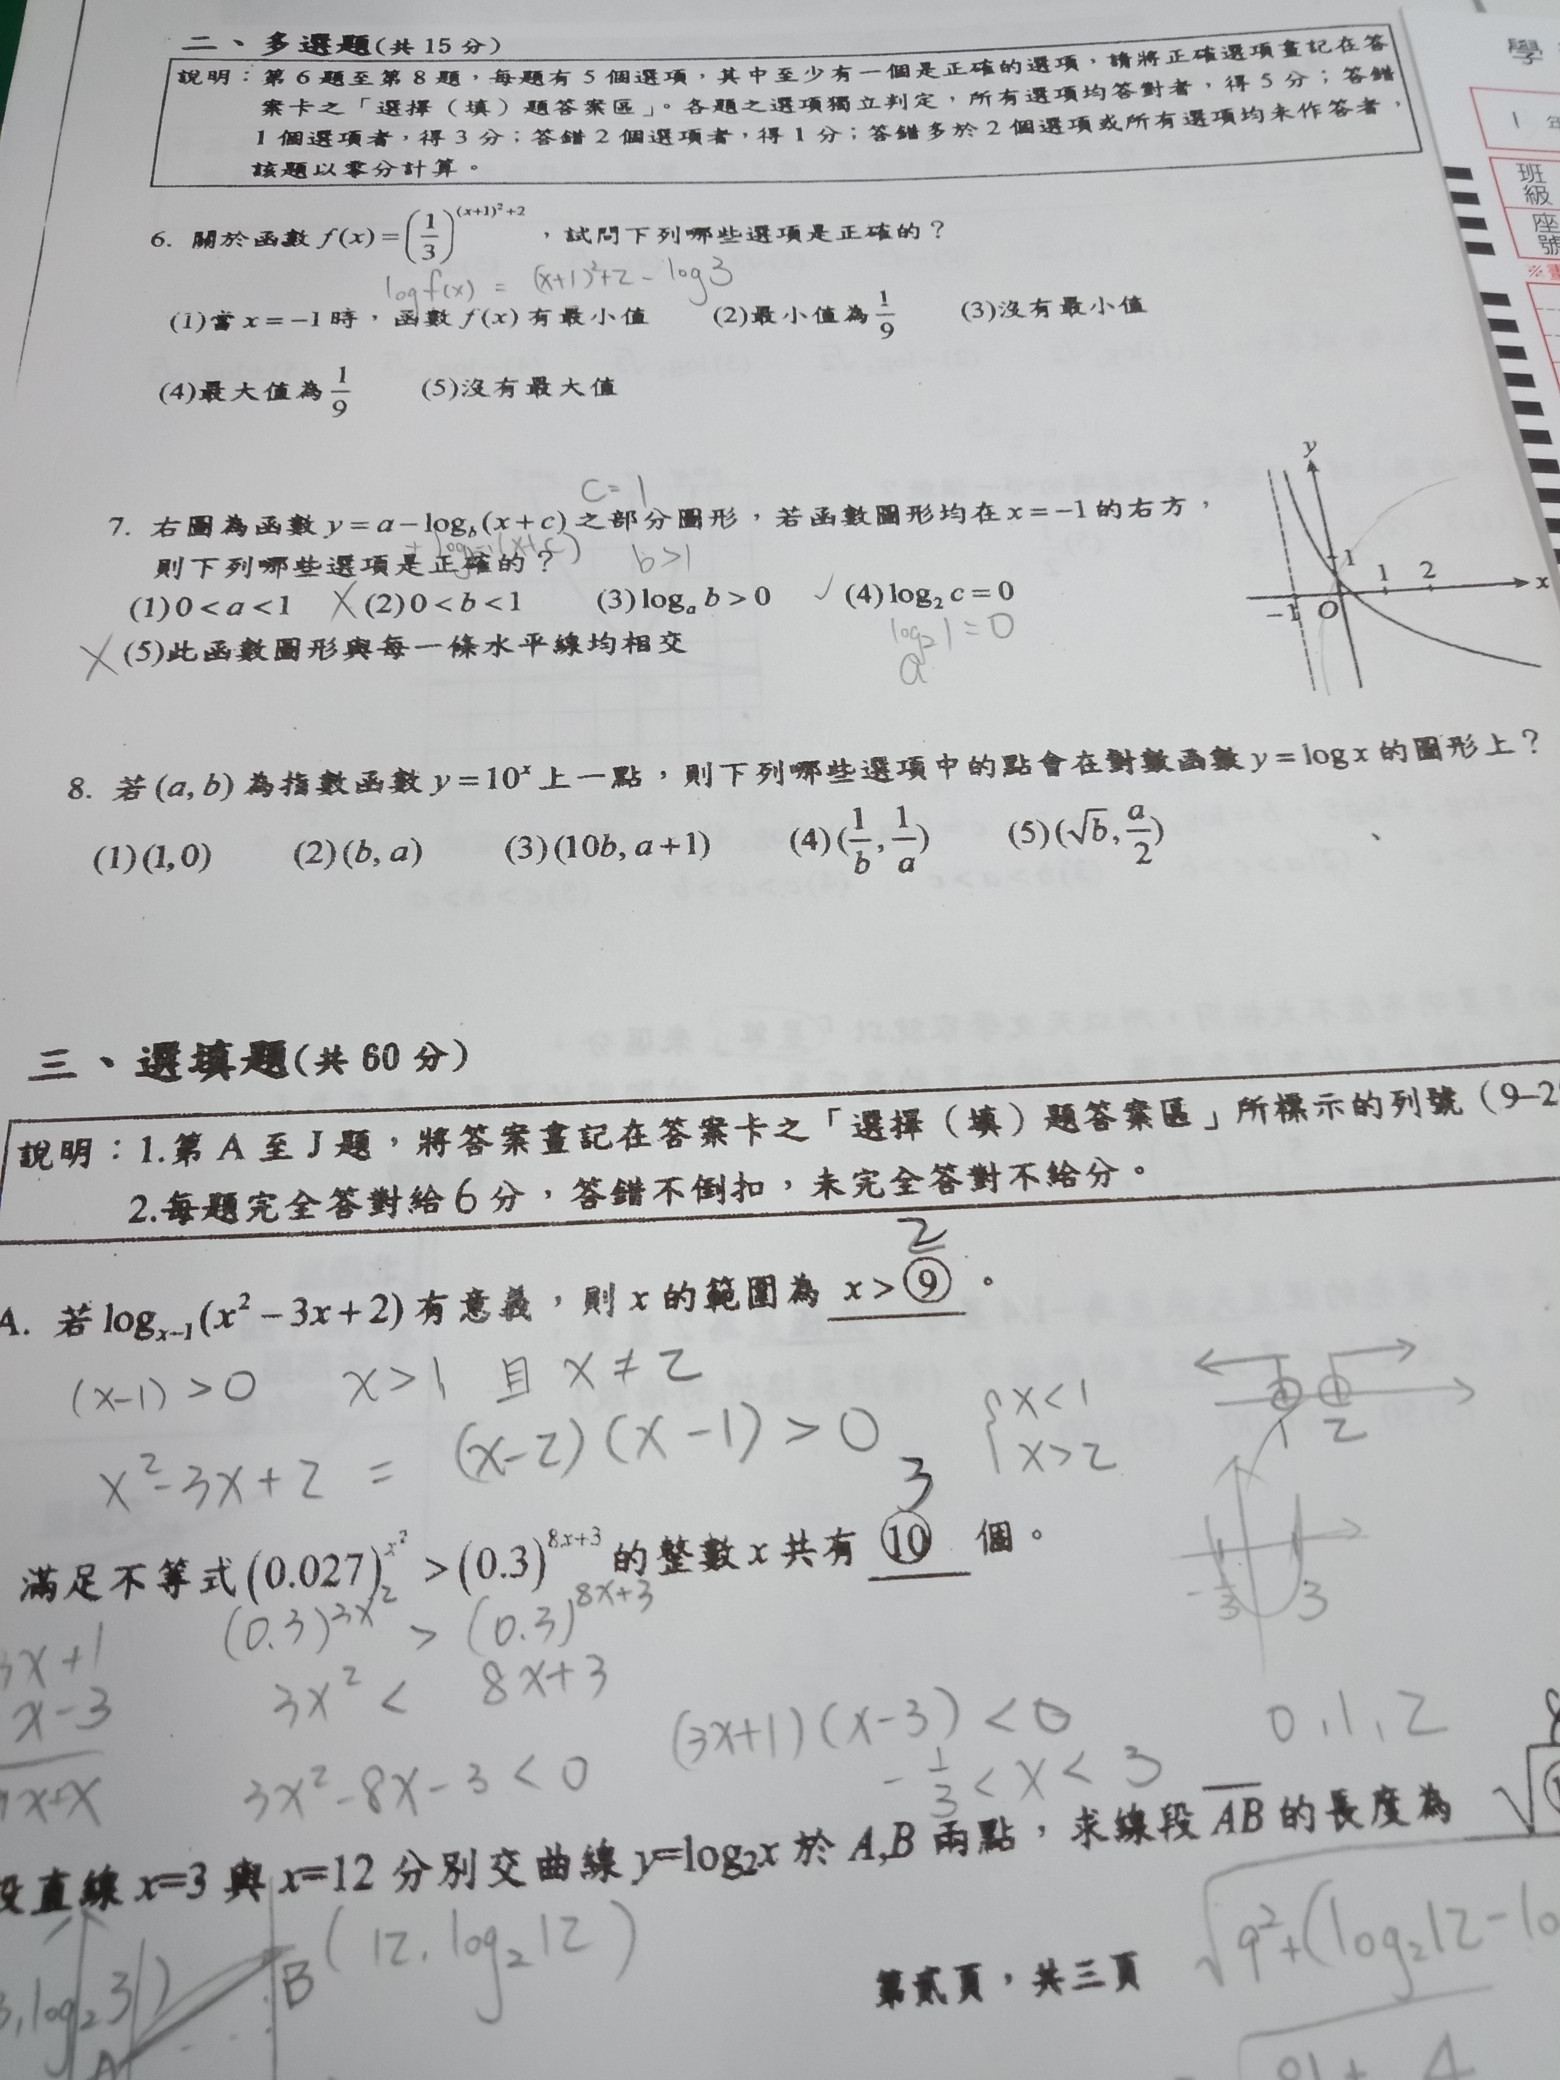 二、多選題(共 15 分)
說明：第 6 題至第 8 題，每題有 5 個選項，其中至少有一個是正確的選項，請將正確選項畫記在答
案卡之「選擇（填）題答案區」。各題之選項獨立判定，所有選項均答對者，得 5 分；答錯
1 個選項者，得 3 分；答錯 2 個選項者，得 1 分；答錯多於 2 個選項或所有選項均未作答者，
該題以零分計算。
6. 關於函數 f(x)=(1/3)^((x+1)²+2)，試問下列哪些選項是正確的？
log f(x) = (x+1)²+2 - log3
(1)當 x=−1 時，函數 f(x) 有最小值 (2)最小值為 1/9 (3)沒有最小值
(4)最大值為 1/9 (5)沒有最大值
C=1
7. 右圖為函數 y=a−log_b(x+c) 之部分圖形，若函數圖形均在 x=−1 的右方，
則下列哪些選項是正確的？ b>1
(1)0<a<1 X (2)0<b<1 (3)log_a b>0 ✓ (4)log₂ c=0
log₂1=0
X (5)此函數圖形與每一條水平線均相交
a
y
1 1 2 x
−1 O
8. 若 (a, b) 為指數函數 y=10^x 上一點，則下列哪些選項中的點會在對數函數 y=log x 的圖形上？
(1)(1,0) (2)(b, a) (3)(10b, a+1) (4)(1/b, 1/a) (5)(√b, a/2)
三、選填題(共 60 分)
說明：1.第 A 至 J 題，將答案畫記在答案卡之「選擇（填）題答案區」所標示的列號（9–2
2.每題完全答對給 6 分，答錯不倒扣，未完全答對不給分。
2
A. 若 log_(x−1)(x²−3x+2) 有意義，則 x 的範圍為 x>⑨。
(x-1)>0 x>1 且 x≠2
x²-3x+2 = (x-2)(x-1)>0 { x<1 x>2
1 2
3
滿足不等式 (0.027)^(x²) > (0.3)^(8x+3) 的整數 x 共有 ⑩ 個。
(0.3)^(3x²) > (0.3)^(8x+3)
-1/3 3
3x+1
x-3
3x² < 8x+3
(3x+1)(x-3)<0 0,1,2
3x²-8x-3<0 -1/3<x<3
設直線 x=3 與 x=12 分別交曲線 y=log₂x 於 A,B 兩點，求線段 AB 的長度為
B (12, log₂12)
3, log₂3)
A
√9²+(log₂12-lo
第貳頁，共三頁
81+4
學
1 年
班級
座號